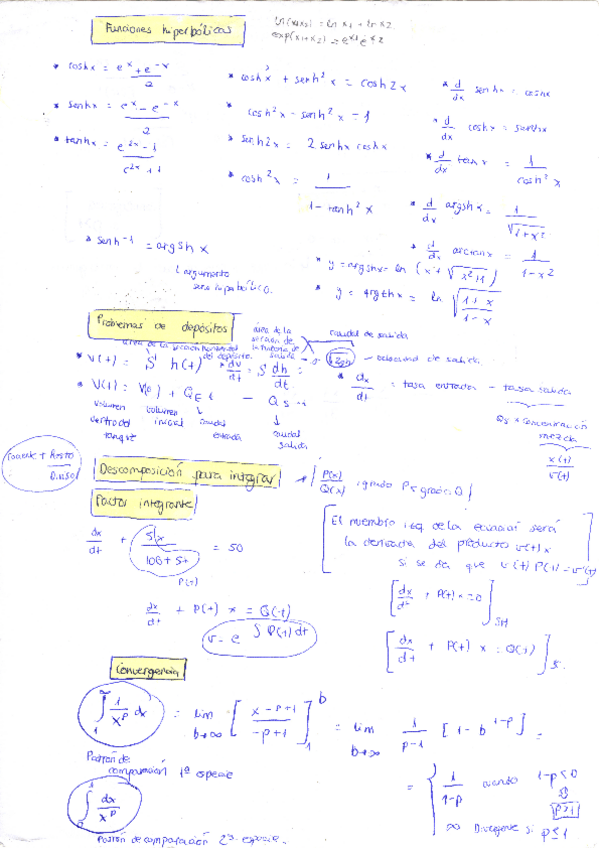 Funciones hiperbólicas
ln(x1x2) = ln x1 + ln x2
exp(x1+x2) = e^x1 e^x2
* cosh x = (e^x + e^-x)/2
* cosh²x + senh²x = cosh 2x
* d/dx senhx = coshx
* senhx = (e^x - e^-x)/2
cosh²x - senh²x = 1
* d/dx coshx = senhx
* tanhx = (e^2x - 1)/(e^2x + 1)
* senh2x = 2 senhx coshx
* d/dx tanx = 1/cosh²x
* cosh²x = 1/(1 - tanh²x)
* d/dx argshx = 1/√(1+x²)
* senh^-1 = argsh x
* d/dx arctanx = 1/(1-x²)
argumento
seno hiperbólico.
* y = argshx = ln (x + √(x²+1))
* y = argthx = ln √((1+x)/(1-x))
Problemas de depósitos
área de la sección de la tubería de salida
caudal de salida
área de la sección horizontal del depósito
* V(t) = S h(t)
* dv/dt = S dh/dt
√2gh → velocidad de salida
* V(t) = V(0) + QE t - QS t
* dx/dt = tasa entrada - tasa salida
volumen dentro del tanque
volumen inicial
caudal entrada
caudal salida
Qs × concentración mezcla
x(t)/V(t)
+ Resto
Divisor
Descomposición para integrar
P(x)/Q(x), grado P < grado Q
Factor integrante
dx/dt + 5x/(100+5t) = 50
P(t)
[El miembro izq. de la ecuación será
la derivada del producto v(t)x
si se da que v(t) P(t) = v'(t)
[dx/dt + P(t)x = 0] SH
dx/dt + P(t) x = Q(t)
v = e^∫P(t)dt
[dx/dt + P(t) x = Q(t)]
Convergencia
∫1^∞ 1/x^p dx = lim b→∞ [x^(-p+1)/(-p+1)]1^b = lim b→∞ 1/(p-1) [1 - b^(1-p)] =
Patrón de
comparación 1ª especie
= { 1/(1-p) cuando 1-p<0
p>1
∫0^1 dx/x^p
∞ Diverge si p≤1
Patrón de comparación 2ª especie.